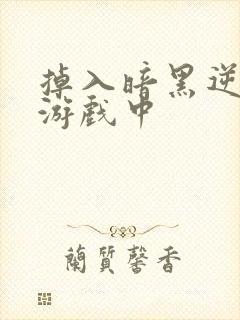 掉入暗黑逆
游戏中
蘭質馨香